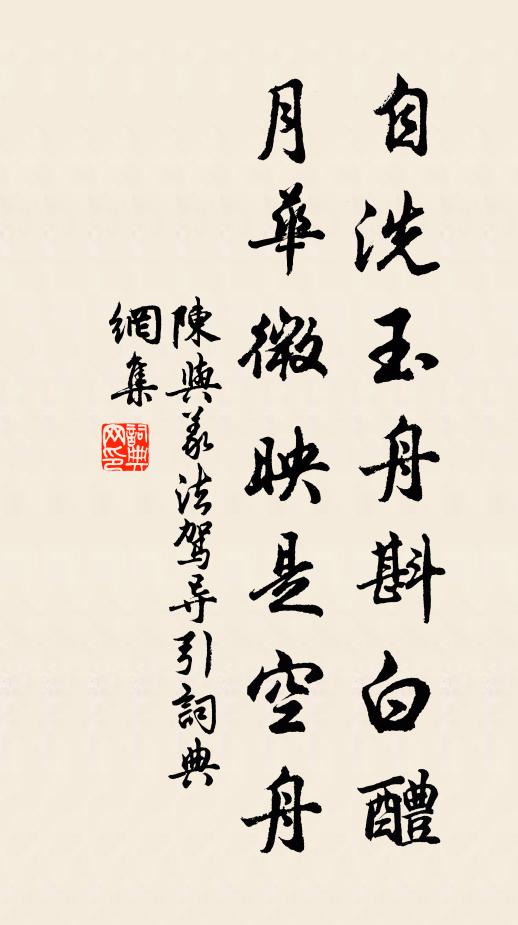 自洗玉舟斟白醴
月華微映是空舟
陳與义法驾导引詞典
網集
詞典
网印